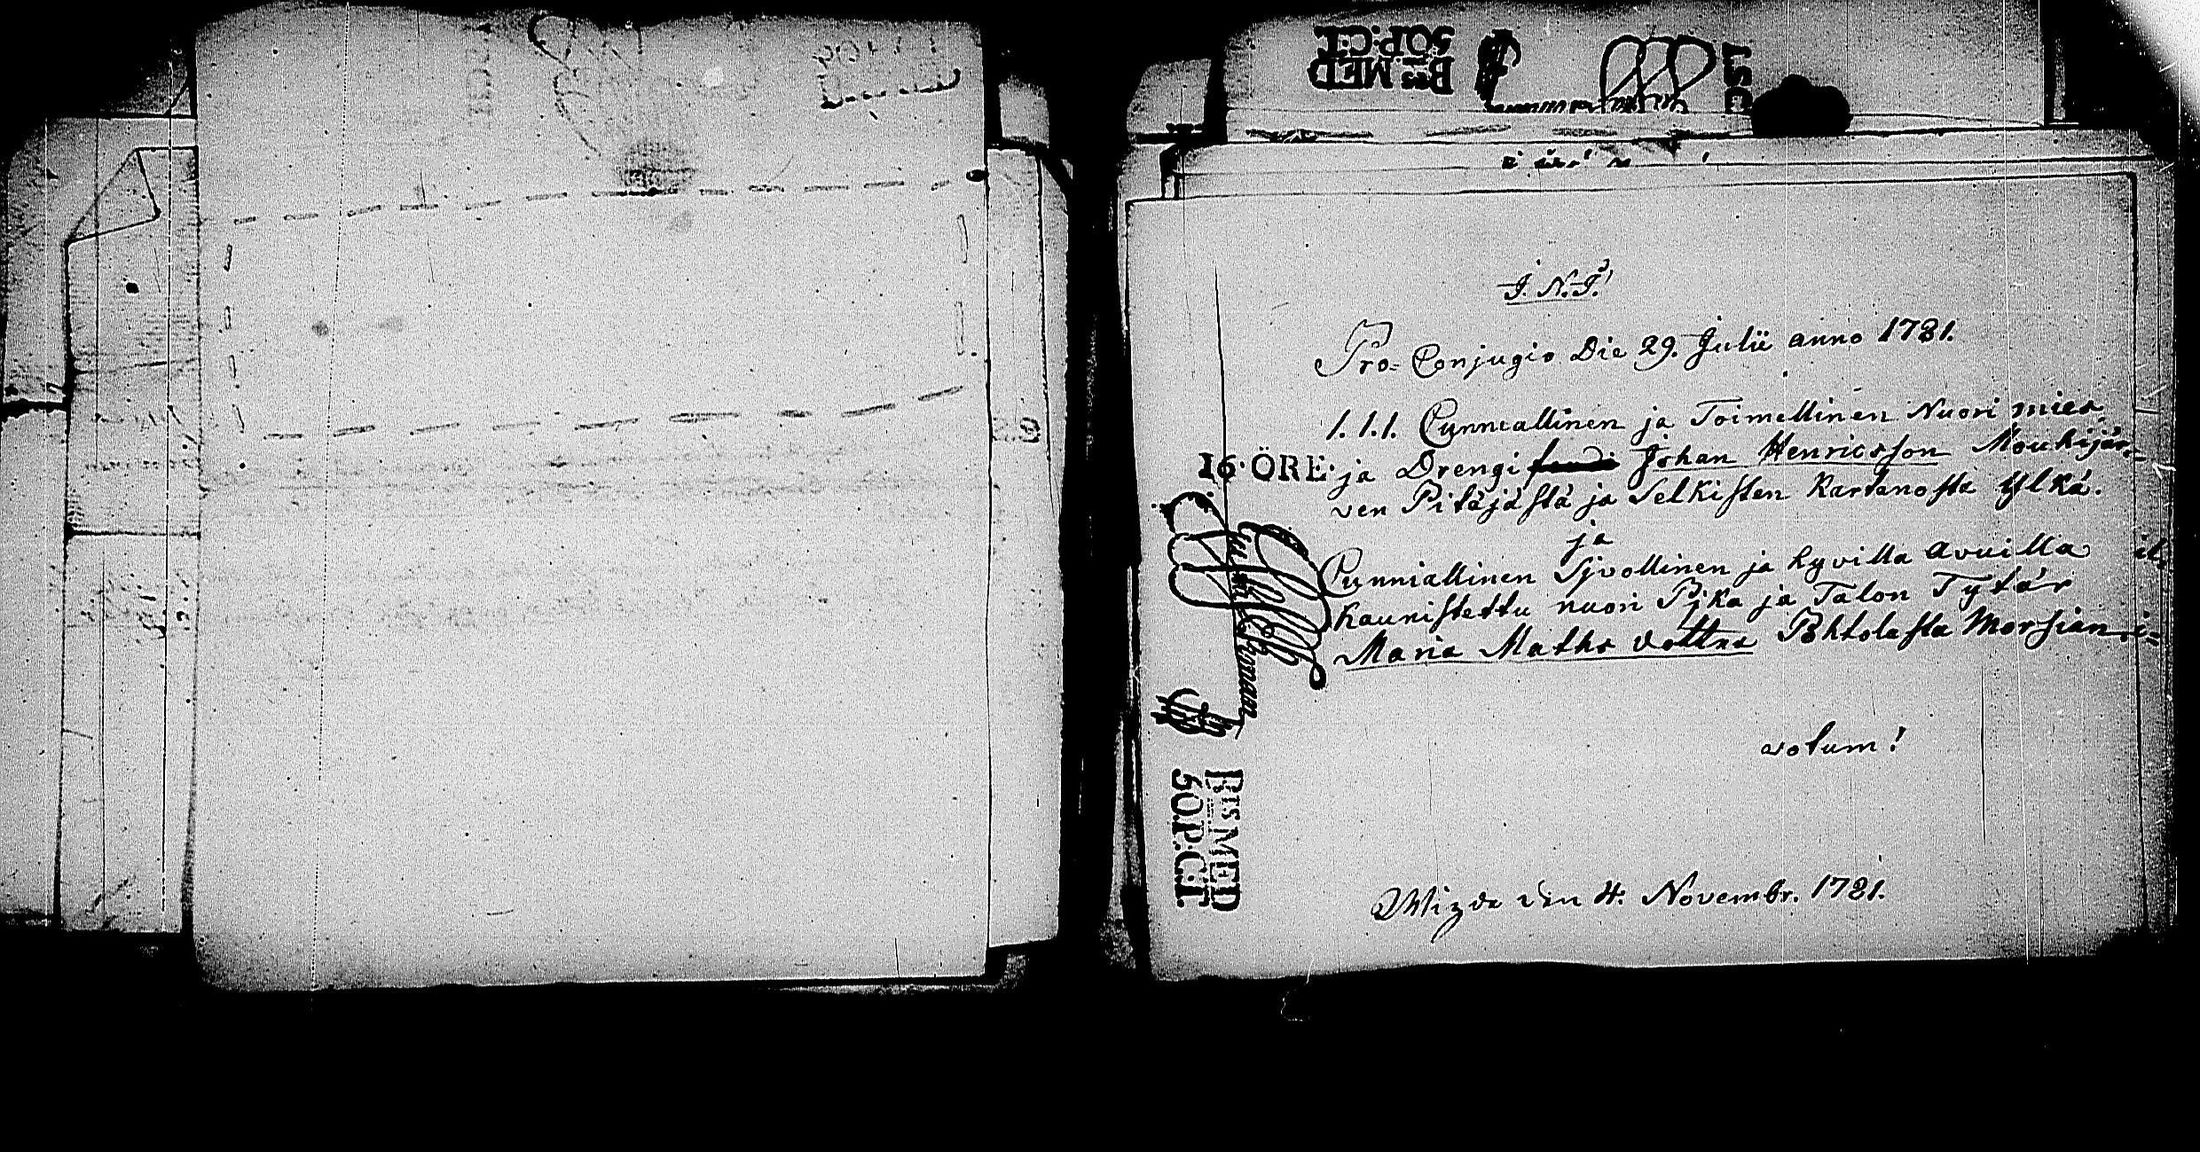 BTS MED
50P:C:T.
J. N. J.
Pro= Conjugio Die 29. Julii anno 1781.
1.1.1. Cunniallinen ja Toimellinen Nuori mies
16·ÖRE·
ja Drengi Johan Henricsson Mouhijär-
ven Pitäjästä ja Selkisten Kartanosta Ylkä.
ja
Cunniallinen Sjvollinen ja hyvilla avuilla
Kaunistettu nuori Pjka ja Talon Tytär
Maria Maths dottra Pohtolasta Morsian
votum!
den 4. Novembr. 1781.
BTS MED
50P:C:T.